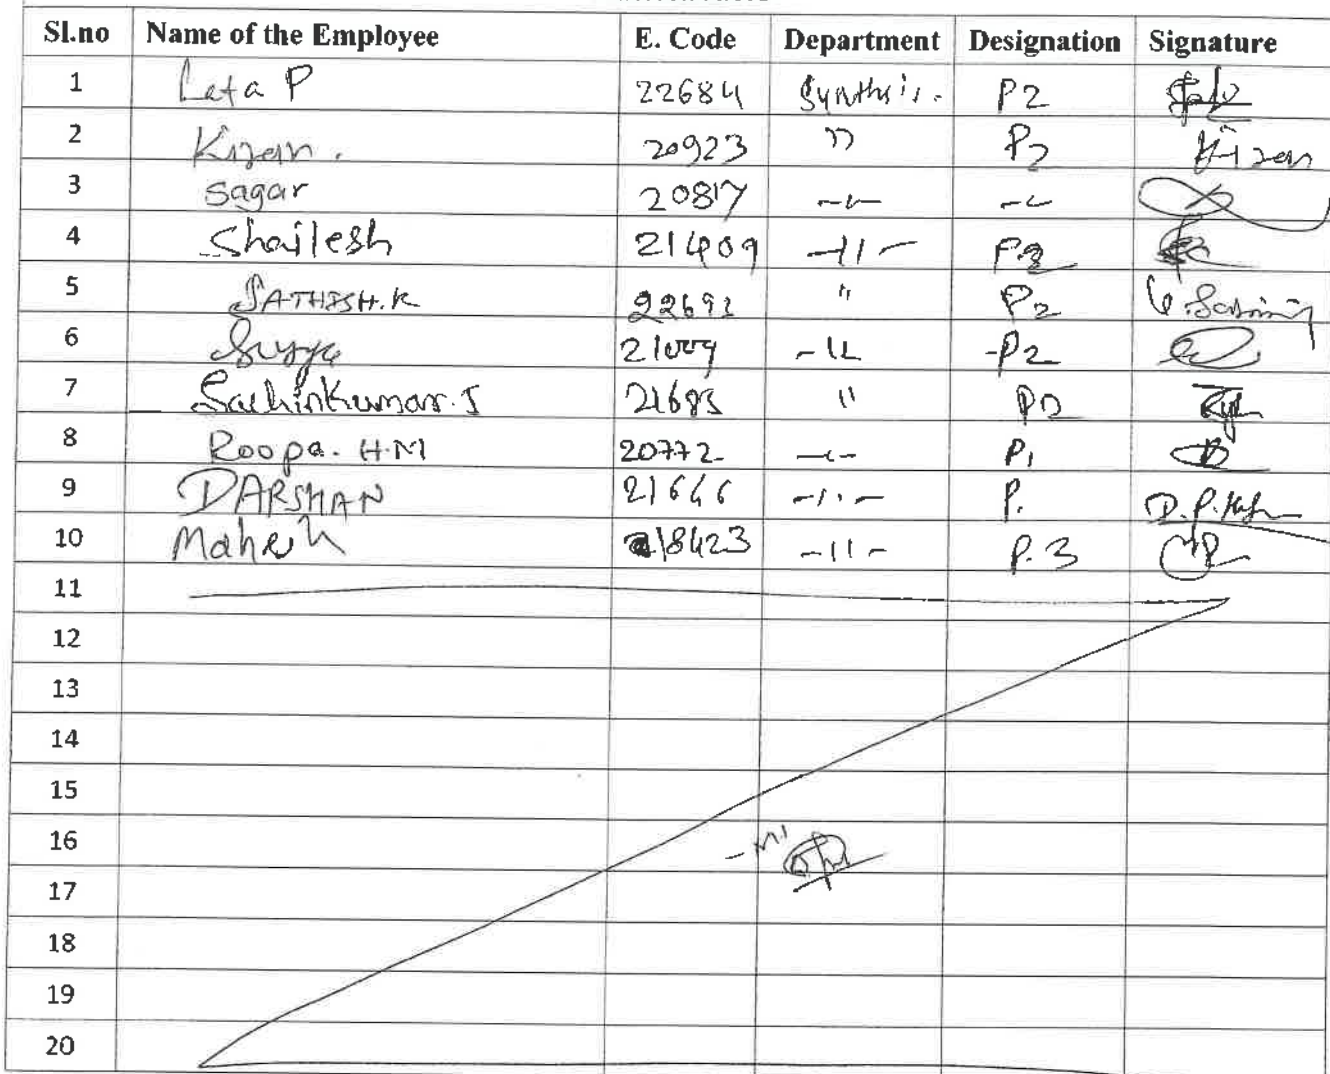 Sl.no Name of the Employee E. Code Department Designation Signature
1 Lata P 22684 Synthsis. P2
2 Kiran. 20923 " P2 Kiran
3 Sagar 20817 -"- -"-
4 Shailesh 21409 -11-
5 SATHISH.K 22692 " P2
6 Surya -11- -P2
7 Sachinkumar.S 21685 11 P2
8 Roopa. H.M 20772 -"- P1
9 DARSHAN 21646 -11- P.
10 Mahesh 18423 -11- P.3
11
12
13
14
15
16
17
18
19
20